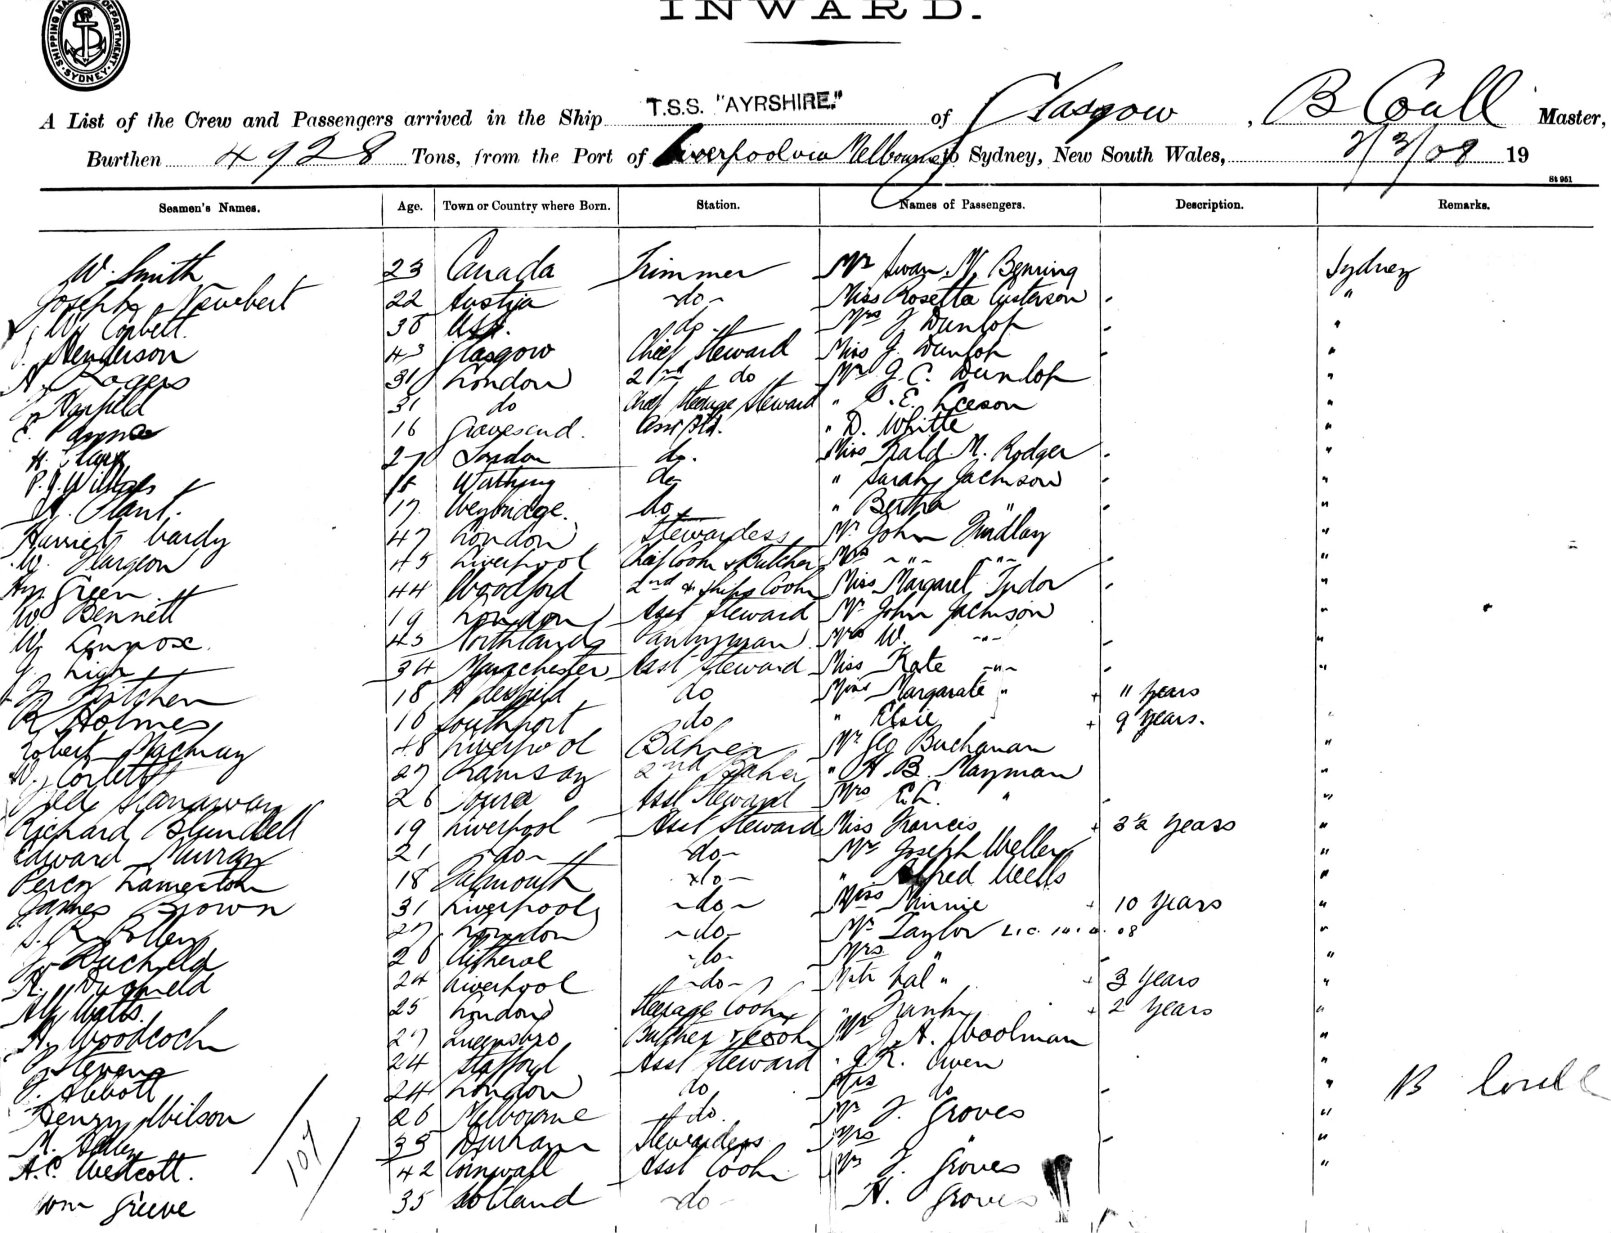 SHIPPING MA DEPARTMENT. SYDNEY
INWARD.
A List of the Crew and Passengers arrived in the Ship T.S.S. "AYRSHIRE." of Glasgow, B Coull Master,
Burthen 4928 Tons, from the Port of Liverpool via Melbourne to Sydney, New South Wales, 2/3/08 19
St 951
Seamen's Names. Age. Town or Country where Born. Station. Names of Passengers. Description. Remarks.
W. Smith 23 Canada Trimmer Mr Swan N. Benning Sydney
Joseph Neubert 22 Austria -do- Miss Rosetta Gusterson "
Wm Corbett. 38 do Mrs J Dunlop "
Henderson 43 Glasgow Chief Steward Miss J. Dunlop "
A. Rogers 31 London 2nd do Mr J. C. Dunlop "
Harfield 31 do Chief Steerage Steward " Leeson "
E. Payne 16 Gravesend. Asst Std. " D. White "
H. Clark 27 London do. Miss M. Rodger "
P. J. Williams do " Sarah Jackson "
Plant. 17 Weybridge. do " Bertha " "
Harriet Hardy 47 London Stewardess Mr John Findlay "
W. Spargeon 45 Liverpool Chief Cook & Butcher Mrs " " "
Hy. Green 44 Woodford 2nd & Ships Cook Miss Margaret Tudor "
W. Bennett 19 London Asst Steward Mr John Jackson "
W. Lennox. 45 Pantryman Mrs W. " "
High 34 Manchester Asst Steward Miss Kate " "
Kitchen 18 do Miss Margarate " 11 years
R Holmes 16 Southport do " Elsie 9 years.
Robert Machray 48 Liverpool Baker Mr Geo Buchanan "
W. Corlett 27 Ramsay 2nd Baker " H. B. Mayman "
26 Asst Steward Mrs " "
Richard Blundell 19 Liverpool Asst Steward Miss Francis 3½ years "
Edward Murray 21 -do- -do- Mr Joseph Weller "
Percy Lamerton 18 Falmouth -do- " Alfred Wells "
James Brown 31 Liverpool -do- Miss Minnie 10 years "
27 London -do- Mr Taylor "
26 -do- Mrs " "
Duffield 24 Liverpool -do- Mstr Hal " 3 years "
Alf Watts. 25 London Steerage Cook " Frank 2 years "
H. Woodcock 27 Queensboro Butcher & Cook Mr J. A. Woolman "
Stevens 24 Stafford Asst Steward " J. R. Owen "
J. Abbott 24 London do Mrs do " B Coull
Henry Wilson 26 Melbourne do. Mr J. Groves "
M. 35 Durham Stewardess Mrs " "
A.C. Westcott. 42 Cornwall Asst Cook Mr J. Groves "
Wm Greeve 35 Holland do H. Groves
107